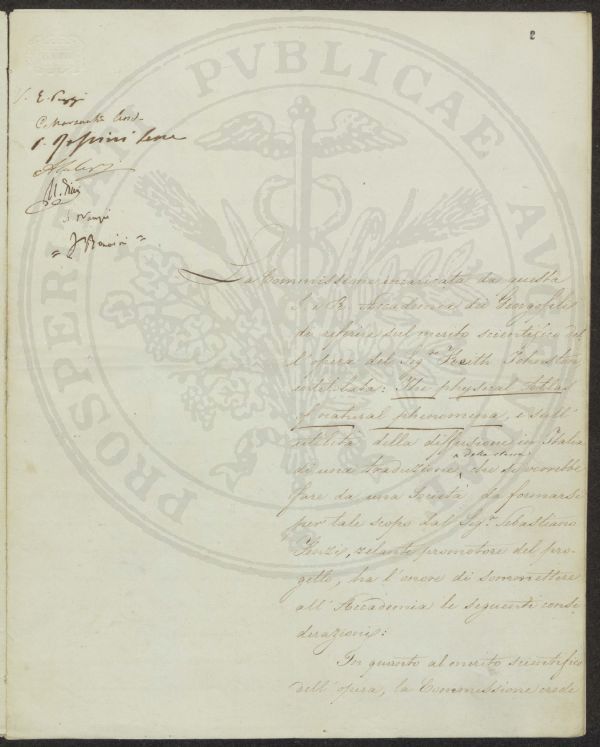 2
PROSPERITATI PVBLICAE AV
E. Poggi
La Commissione incaricata da questa
I. e R. Accademia dei Georgofili
di referire sul merito scientifico del
l'opera del Sig.r Keith Johnston
intitolata: The physical Atlas
of natural phenomena, e sull'
utilità della diffusione in Italia
di una traduzione della stessa, che si vorrebbe
fare da una Società da formarsi
per tale scopo dal Sig.r Sebastiano
Fenzi, zelante promotore del pro-
getto, ha l'onore di sommettere
all'Accademia le seguenti consi
derazioni:
In quanto al merito scientifico
dell'opera, la Commissione crede